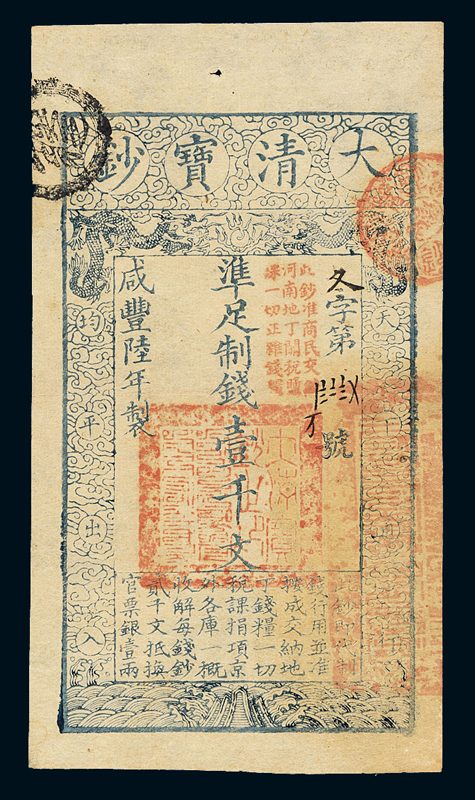 大清寶鈔
天下通行
字第
號
此鈔准商民交
河南地丁關稅鹽
課一切正雜錢糧
準足制錢壹千文
咸豐陸年製
均平出入
此鈔即代制
錢行用並准
按成交納地
丁錢糧一切
稅課捐項京
外各庫一概
收解每錢鈔
貳千文抵換
官票銀壹兩